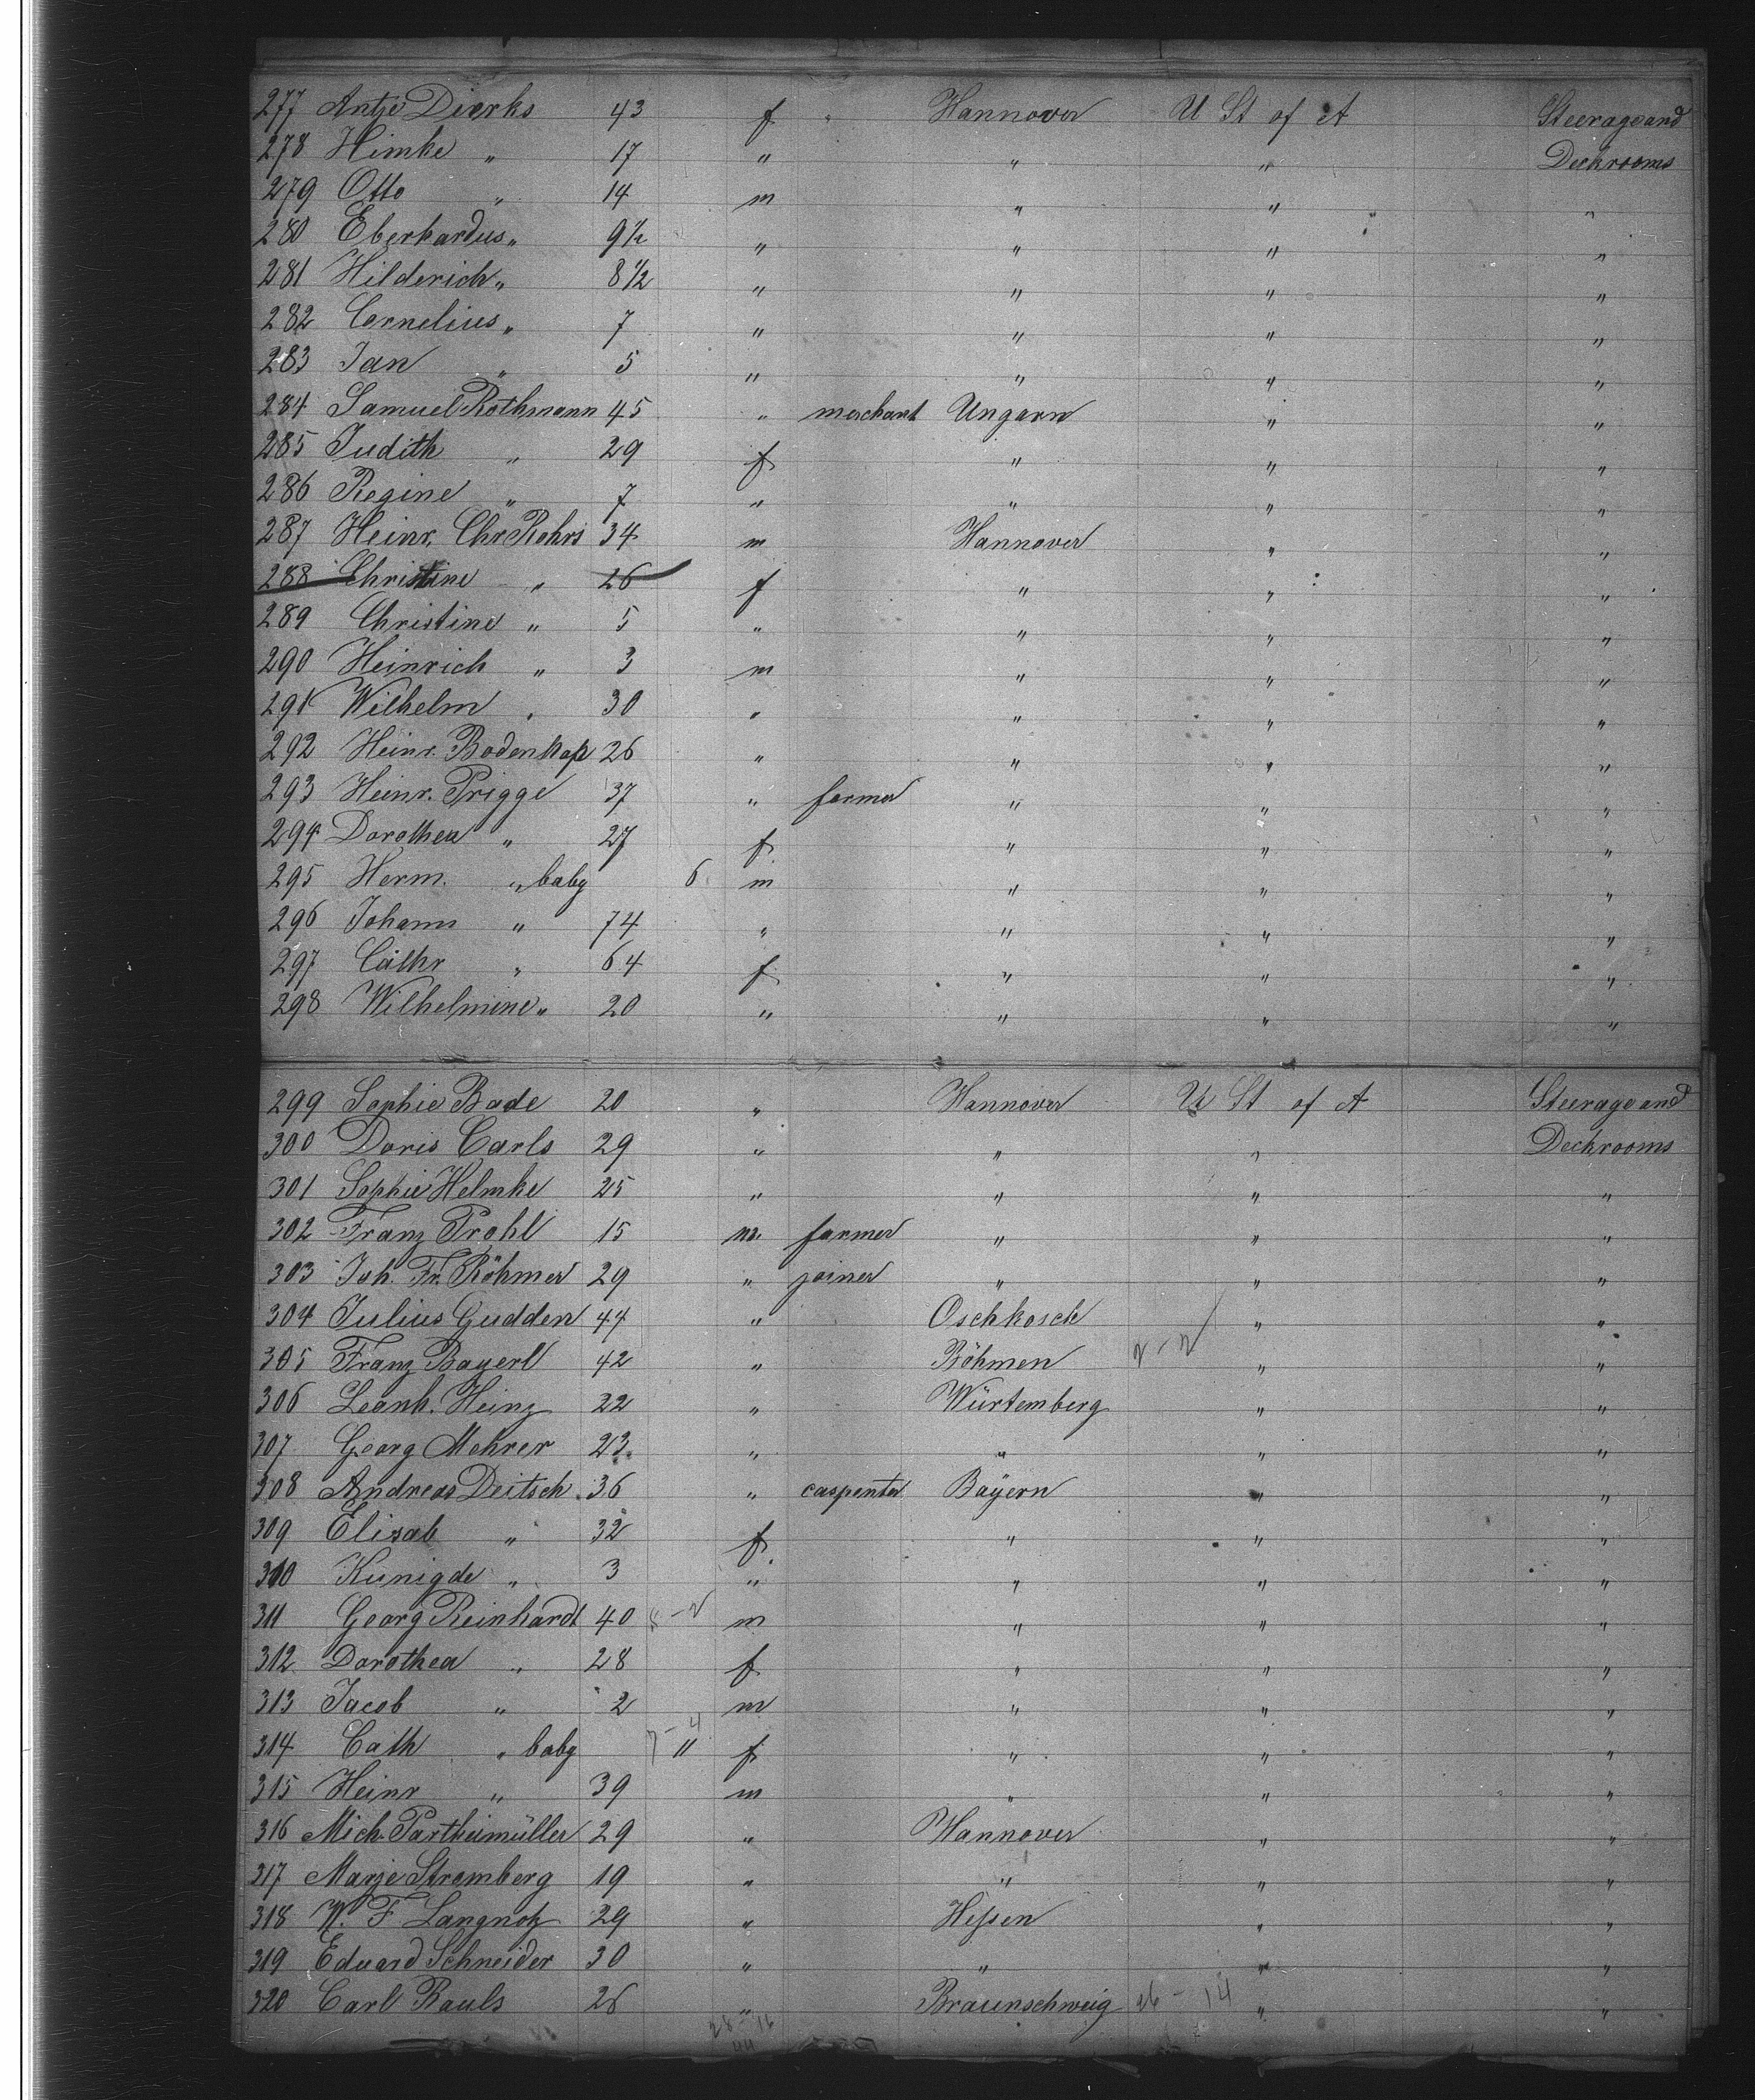 277 Antje Dierks 43 f " Hannover U St of A Steerage and
278 Himke " 17 " " " Deckrooms
279 Otto " 14 m " " "
280 Eberhardus " 9½ " " " "
281 Hilderich " 8½ " " " "
282 Cornelius " 7 " " " "
283 Jan " 5 " " " "
284 Samuel Rothmann 45 " merchant Ungarn " "
285 Judith " 29 f " " "
286 Regine " 7 " " " "
287 Heinr. Chr Rohrs 34 m Hannover " "
288 Christine " 26 f " " "
289 Christine " 5 " " " "
290 Heinrich " 3 m " " "
291 Wilhelm " 30 " " " "
292 Heinr. Bodenkop 26 " " " "
293 Heinr. Prigge 37 " farmer " " "
294 Dorothea " 27 f " " "
295 Herm. " baby 6 m " " "
296 Johann " 74 " " " "
297 Cathr " 64 f " " "
298 Wilhelmine " 20 " " " "
299 Sophie Bade 20 " Hannover U St of A Steerage and
300 Doris Carls 29 " " " Deckrooms
301 Sophie Helmke 25 " " " "
302 Franz Prohl 15 m. farmer " " "
303 Joh. Fr. Röhmer 29 " joiner " " "
304 Julius Gudden 44 " Oschkosch " "
305 Franz Bayerl 42 " Böhmen " "
306 Leonh. Heinz 22 " Würtemberg " "
307 Georg Mehrer 23. " " " "
308 Andreas Deitsch 36 " carpenter Bayern " "
309 Elisab " 32 f " " "
310 Kunigde " 3 " " " "
311 Georg Reinhardt 40 m " " "
312 Dorothea " 28 f " " "
313 Jacob " 2 m " " "
314 Cath " baby 11 f " " "
315 Heinr " 39 m " " "
316 Mich. Partheimüller 29 " Hannover " "
317 Marje Stromberg 19 " " " "
318 W. F Langnotz 29 " Hessen " "
319 Eduard Schneider 30 " " " "
320 Carl Rauls 26 " Braunschweig 26 - 14 " "